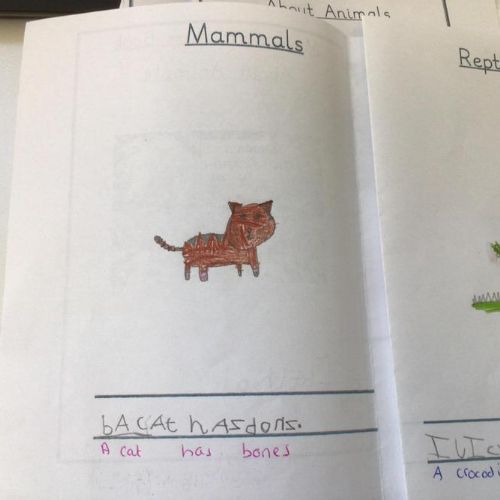 About Animals
Mammals
Rept
bACAt hASdons.
A cat has bones
A crocodi